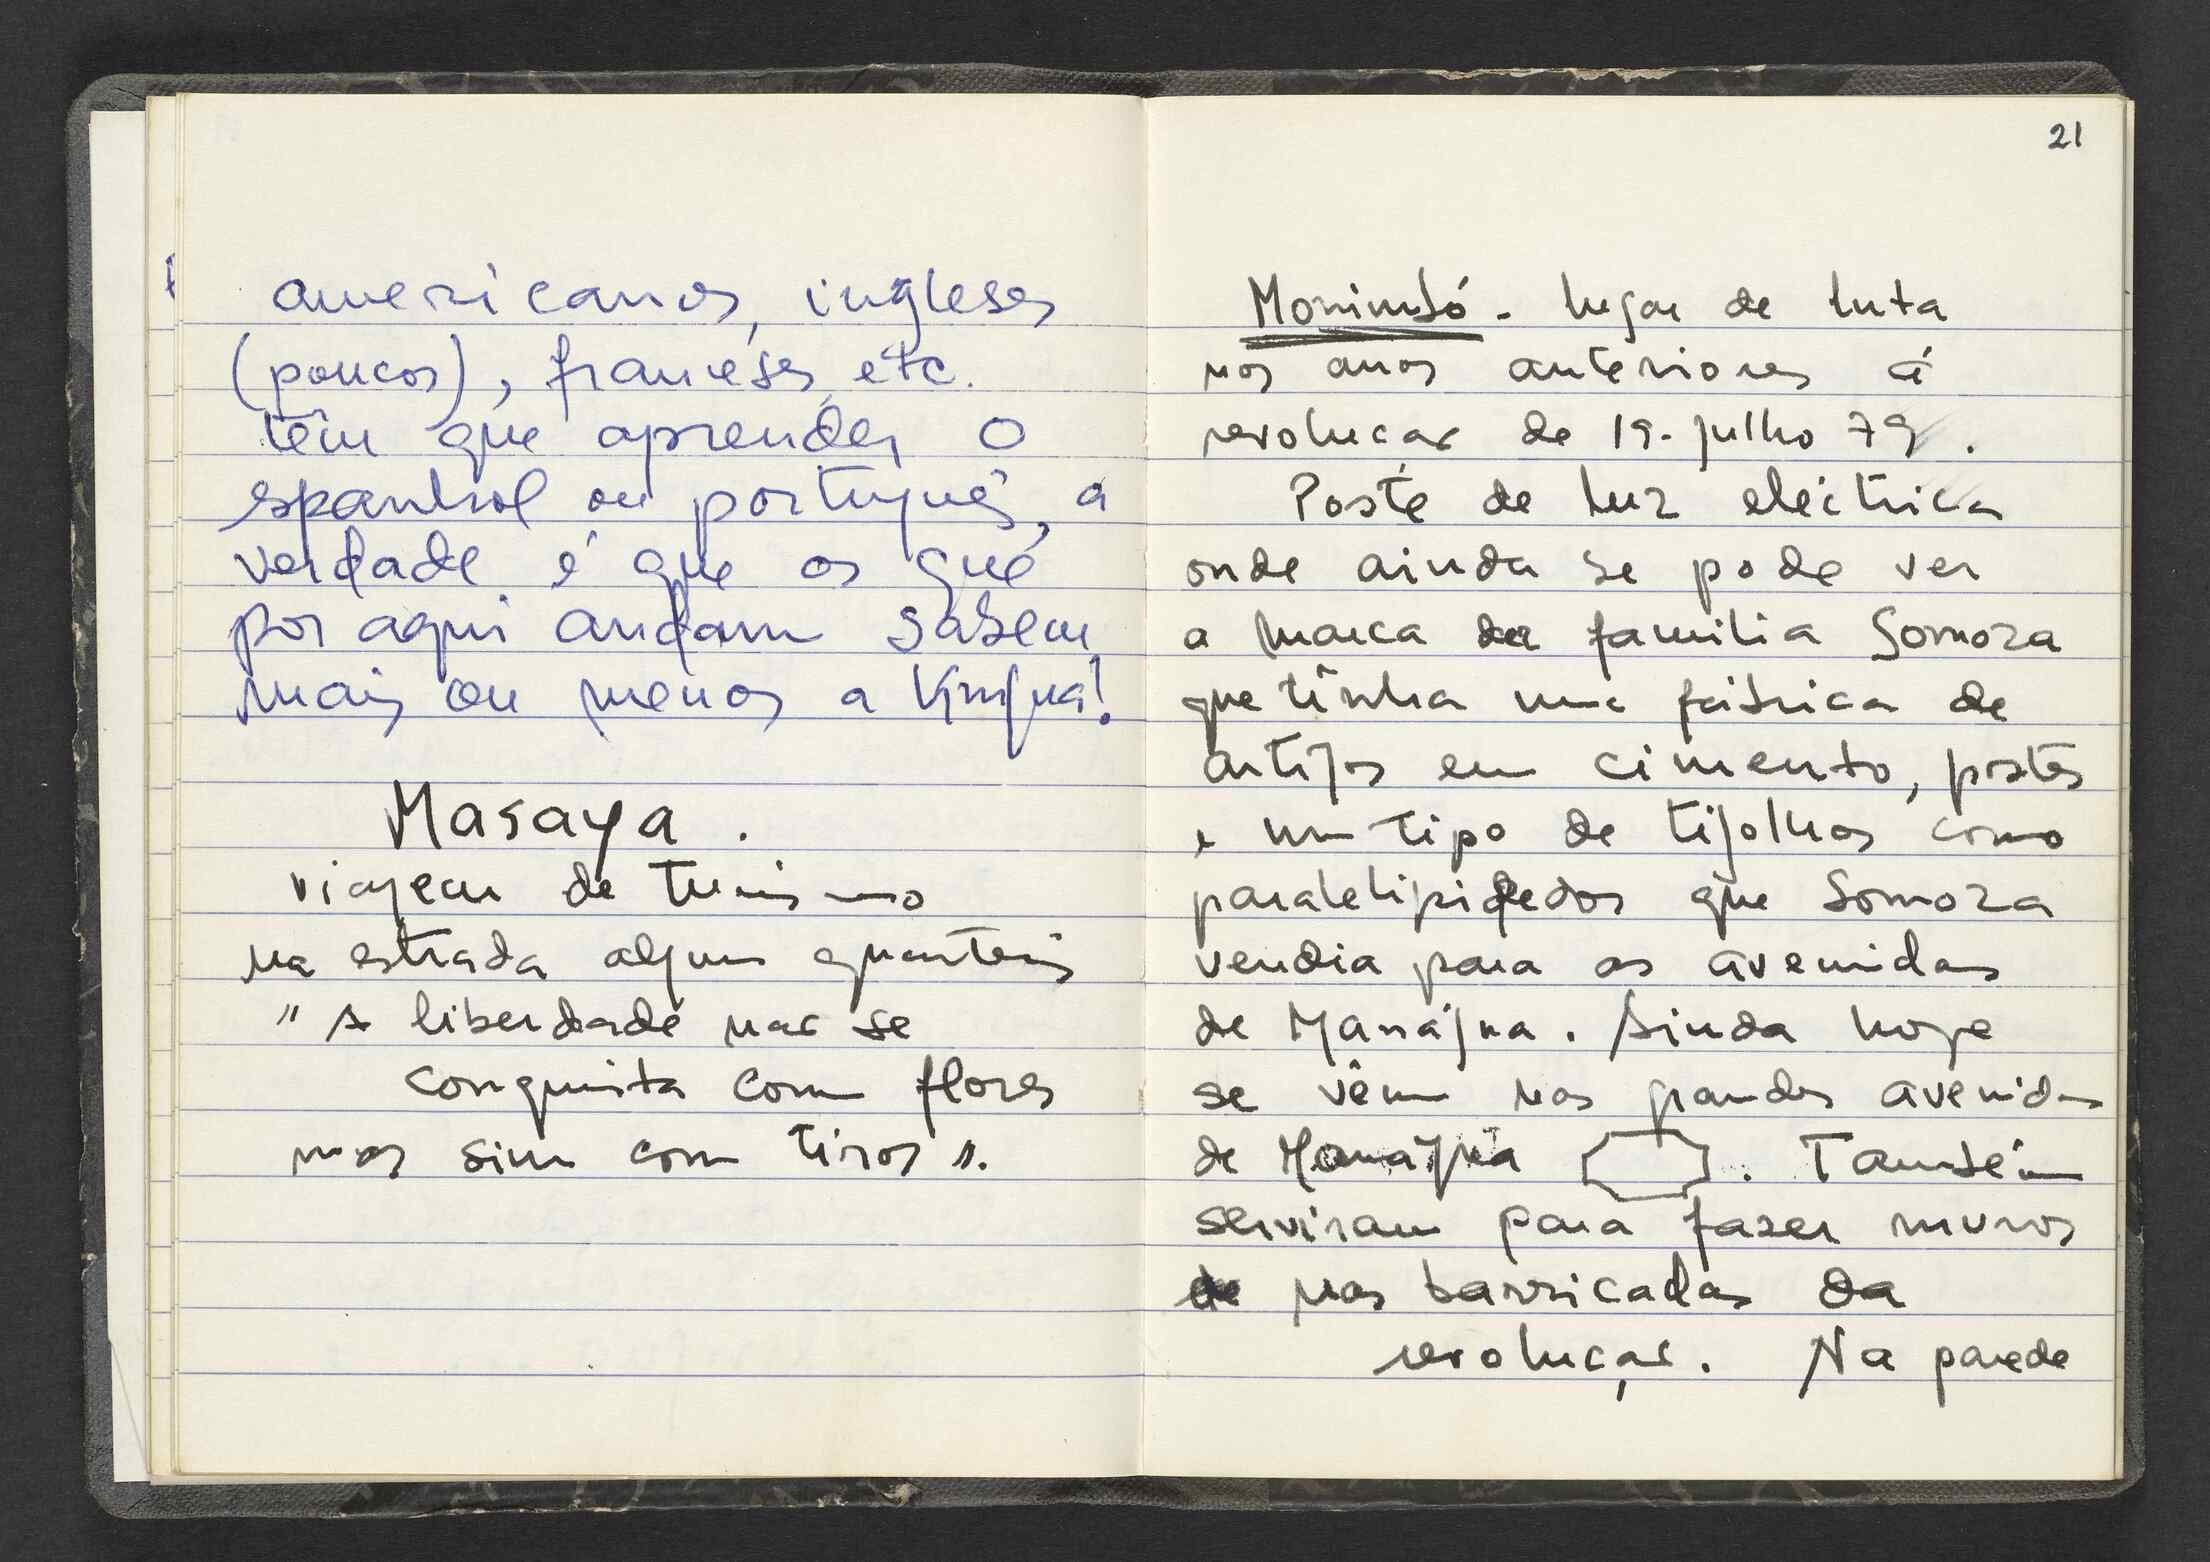 americanos, ingleses
(poucos), francêses, etc.
têm que aprender o
espanhol ou português, a
verdade é que os que
por aqui andam sabem
mais ou menos a língua!
Masaya.
viagem de turismo
na estrada alguns quarteis
"A liberdade nao se
conquista com flores
mas sim com tiros".
21
Monimbó - lugar de luta
nos anos anteriores á
revolucao de 19. julho 79.
Poste de luz eléctrica
onde ainda se pode ver
a marca da familia Somoza
que tinha uma fábrica de
artigos em cimento, postes
e um tipo de tijolhos como
paralelipipedos que Somoza
vendia para as avenidas
de Manágua. Ainda hoje
se vêm nas grandes avenidas
de Manágua. Também
serviram para fazer muros
nas barricadas da
revoluçao. Na parede